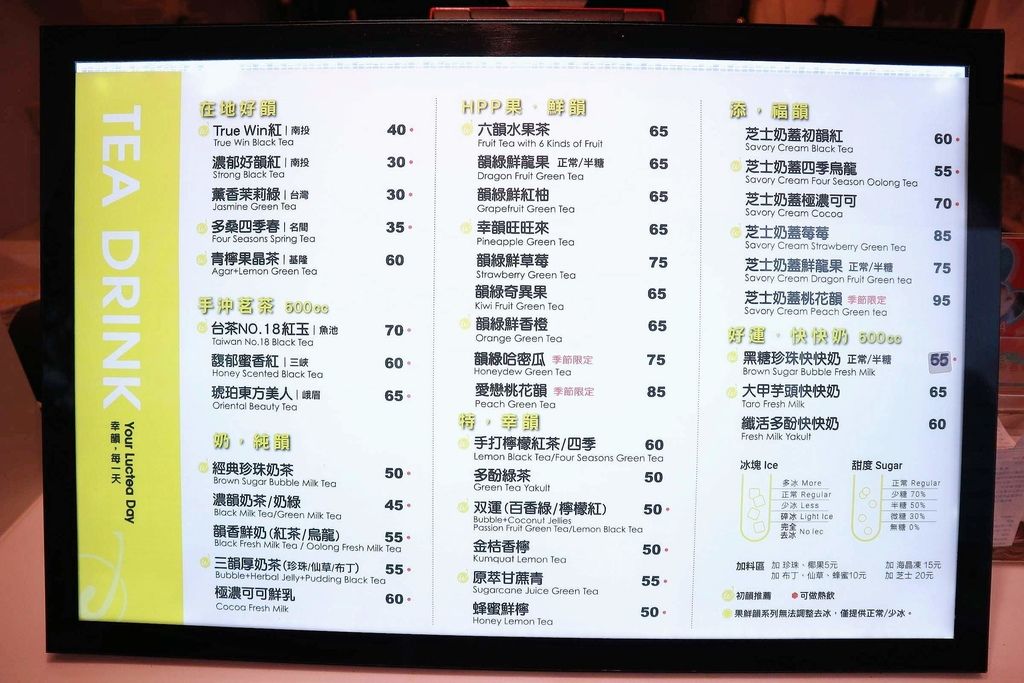 TEA DRINK
Your Luctea Day
幸韻，每一天
在地好韻
True Win紅 | 南投 40
True Win Black Tea
濃郁好韻紅 | 南投 30
Strong Black Tea
薰香茉莉綠 | 台灣 30
Jasmine Green Tea
多桑四季春 | 名間 35
Four Seasons Spring Tea
青檸果晶茶 | 基隆 60
Agar+Lemon Green Tea
手沖茗茶 500cc
台茶NO.18紅玉 | 魚池 70
Taiwan No.18 Black Tea
馥郁蜜香紅 | 三峽 60
Honey Scented Black Tea
琥珀東方美人 | 峨眉 65
Oriental Beauty Tea
奶，純韻
經典珍珠奶茶 50
Brown Sugar Bubble Milk Tea
濃韻奶茶/奶綠 45
Black Milk Tea/Green Milk Tea
韻香鮮奶(紅茶/烏龍) 55
Black Fresh Milk Tea / Oolong Fresh Milk Tea
三韻厚奶茶(珍珠/仙草/布丁) 55
Bubble+Herbal Jelly+Pudding Black Tea
極濃可可鮮乳 60
Cocoa Fresh Milk
HPP果．鮮韻
六韻水果茶 65
Fruit Tea with 6 Kinds of Fruit
韻綠鮮龍果 正常/半糖 65
Dragon Fruit Green Tea
韻綠鮮紅柚 65
Grapefruit Green Tea
幸韻旺旺來 65
Pineapple Green Tea
韻綠鮮草莓 75
Strawberry Green Tea
韻綠奇異果 65
Kiwi Fruit Green Tea
韻綠鮮香橙 65
Orange Green Tea
韻綠哈密瓜 季節限定 75
Honeydew Green Tea
愛戀桃花韻 季節限定 85
Peach Green Tea
特，幸韻
手打檸檬紅茶/四季 60
Lemon Black Tea/Four Seasons Green Tea
多酚綠茶 50
Green Tea Yakult
双運(百香綠/檸檬紅) 50
Bubble+Coconut Jellies
Passion Fruit Green Tea/Lemon Black Tea
金桔香檸 50
Kumquat Lemon Tea
原萃甘蔗青 55
Sugarcane Juice Green Tea
蜂蜜鮮檸 50
Honey Lemon Tea
添，福韻
芝士奶蓋初韻紅 60
Savory Cream Black Tea
芝士奶蓋四季烏龍 55
Savory Cream Four Season Oolong Tea
芝士奶蓋極濃可可 70
Savory Cream Cocoa
芝士奶蓋莓莓 85
Savory Cream Strawberry Green Tea
芝士奶蓋鮮龍果 正常/半糖 75
Savory Cream Dragon Fruit Green Tea
芝士奶蓋桃花韻 季節限定 95
Savory Cream Peach Green tea
好運．快快奶 500cc
黑糖珍珠快快奶 正常/半糖 55
Brown Sugar Bubble Fresh Milk
大甲芋頭快快奶 65
Taro Fresh Milk
纖活多酚快快奶 60
Fresh Milk Yakult
冰塊 Ice
多冰 More
正常 Regular
少冰 Less
碎冰 Light Ice
完全去冰 No Iec
甜度 Sugar
正常 Regular
少糖 70%
半糖 50%
微糖 30%
無糖 0%
加料區 加 珍珠、椰果5元 加 海晶凍 15元
加 布丁、仙草、蜂蜜10元 加 芝士 20元
初韻推薦 可做熱飲
果鮮韻系列無法調整去冰，僅提供正常/少冰。